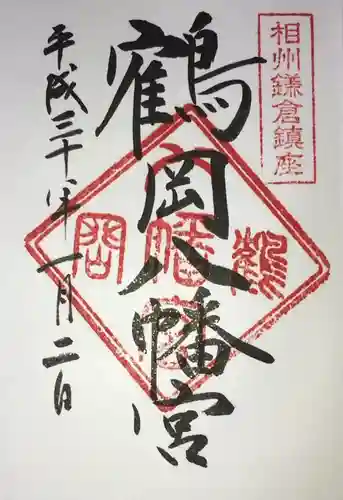 相州鎌倉鎮座
鶴岡八幡宮
平成三十八年一月二日